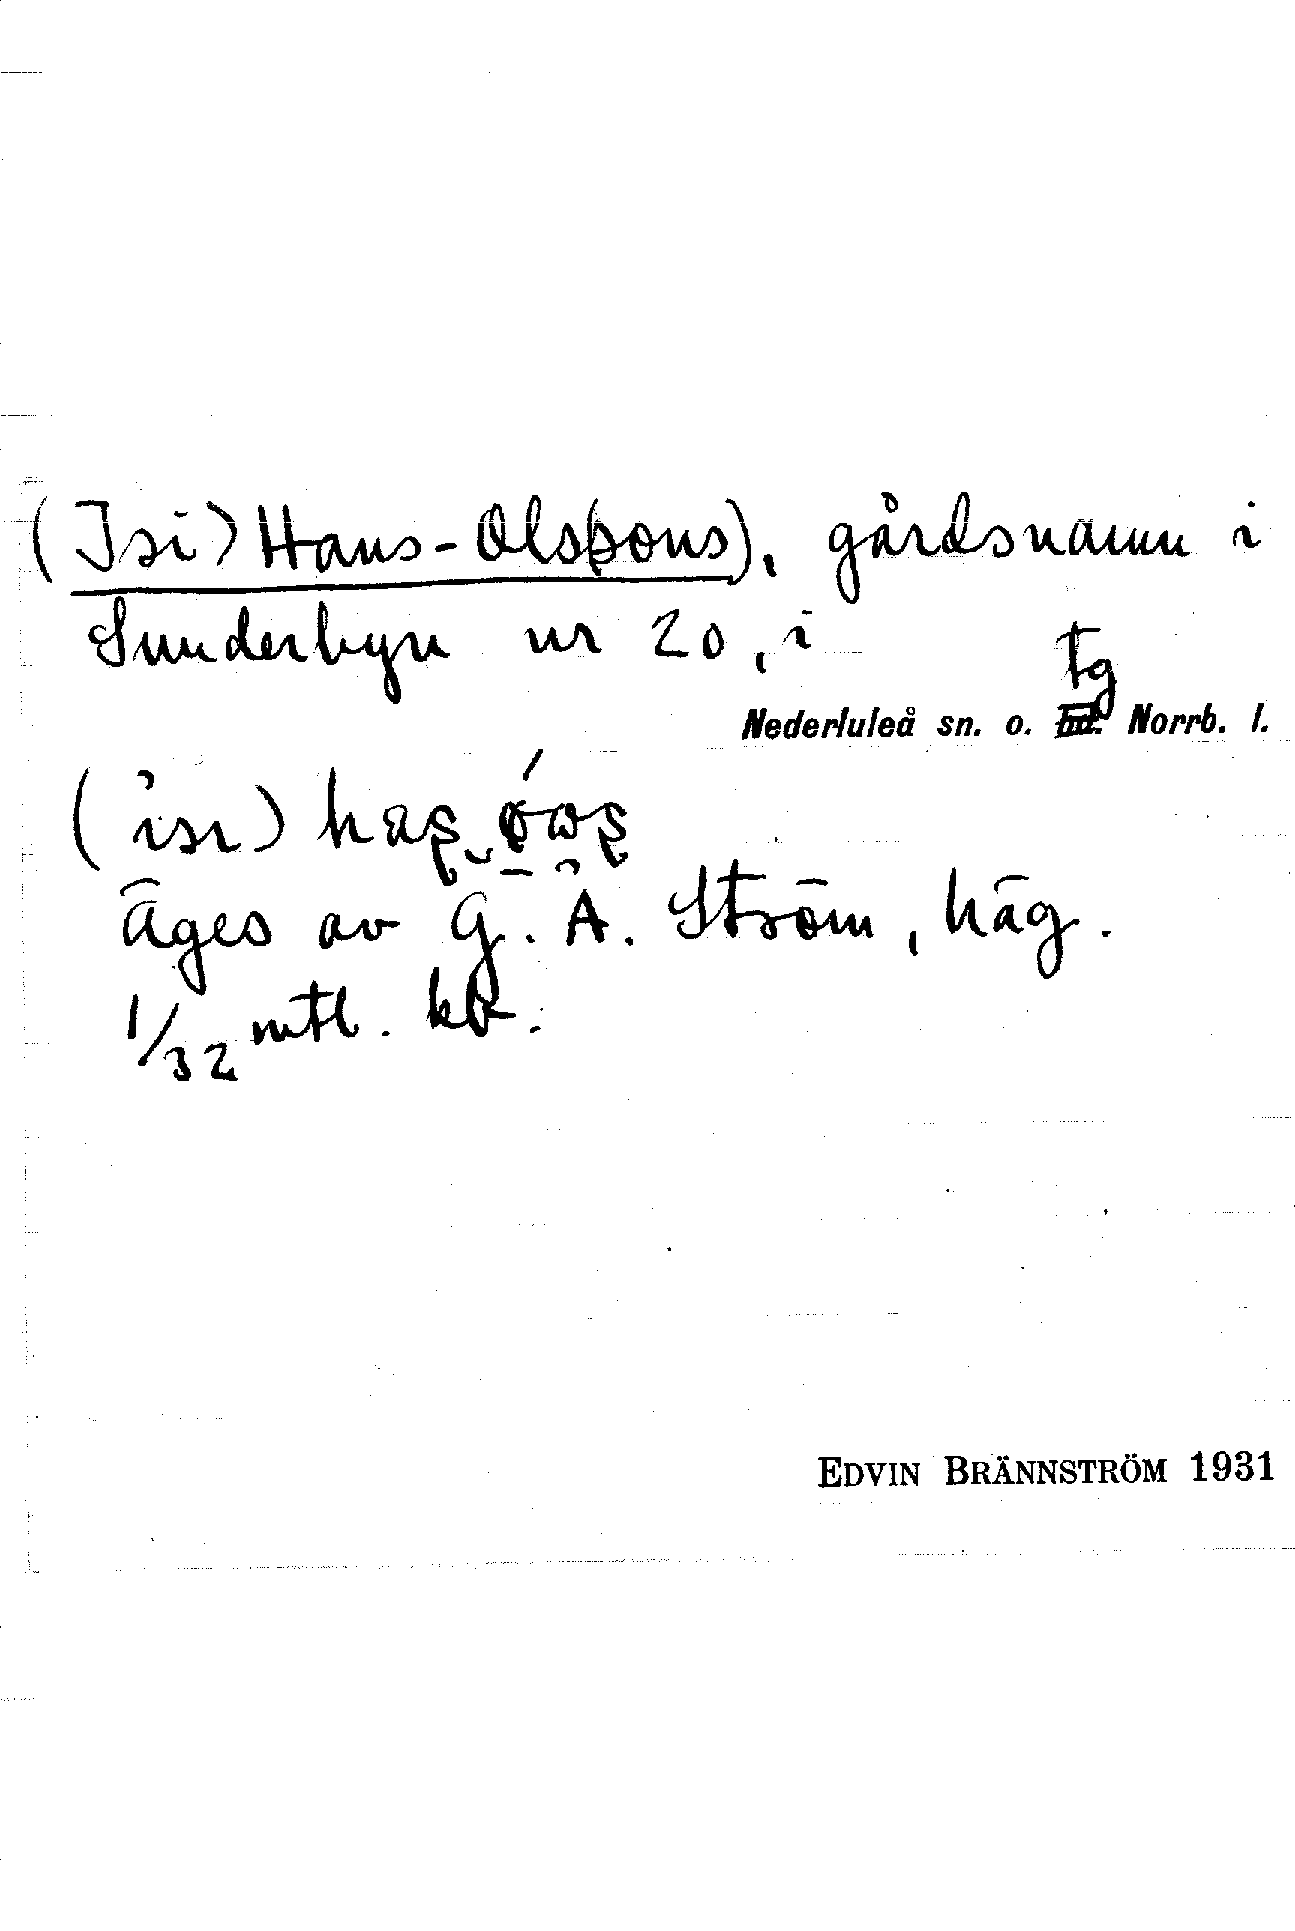 (Isi) Hans-Ols(sons), gårdsnamn i
Sunderbyn nr 20, i
tg
Nederluleå sn. o. Norrb. l.
(isı)
Äges av G. A. Ström, häg.
1/32 mtl. kr.
EDVIN BRÄNNSTRÖM 1931